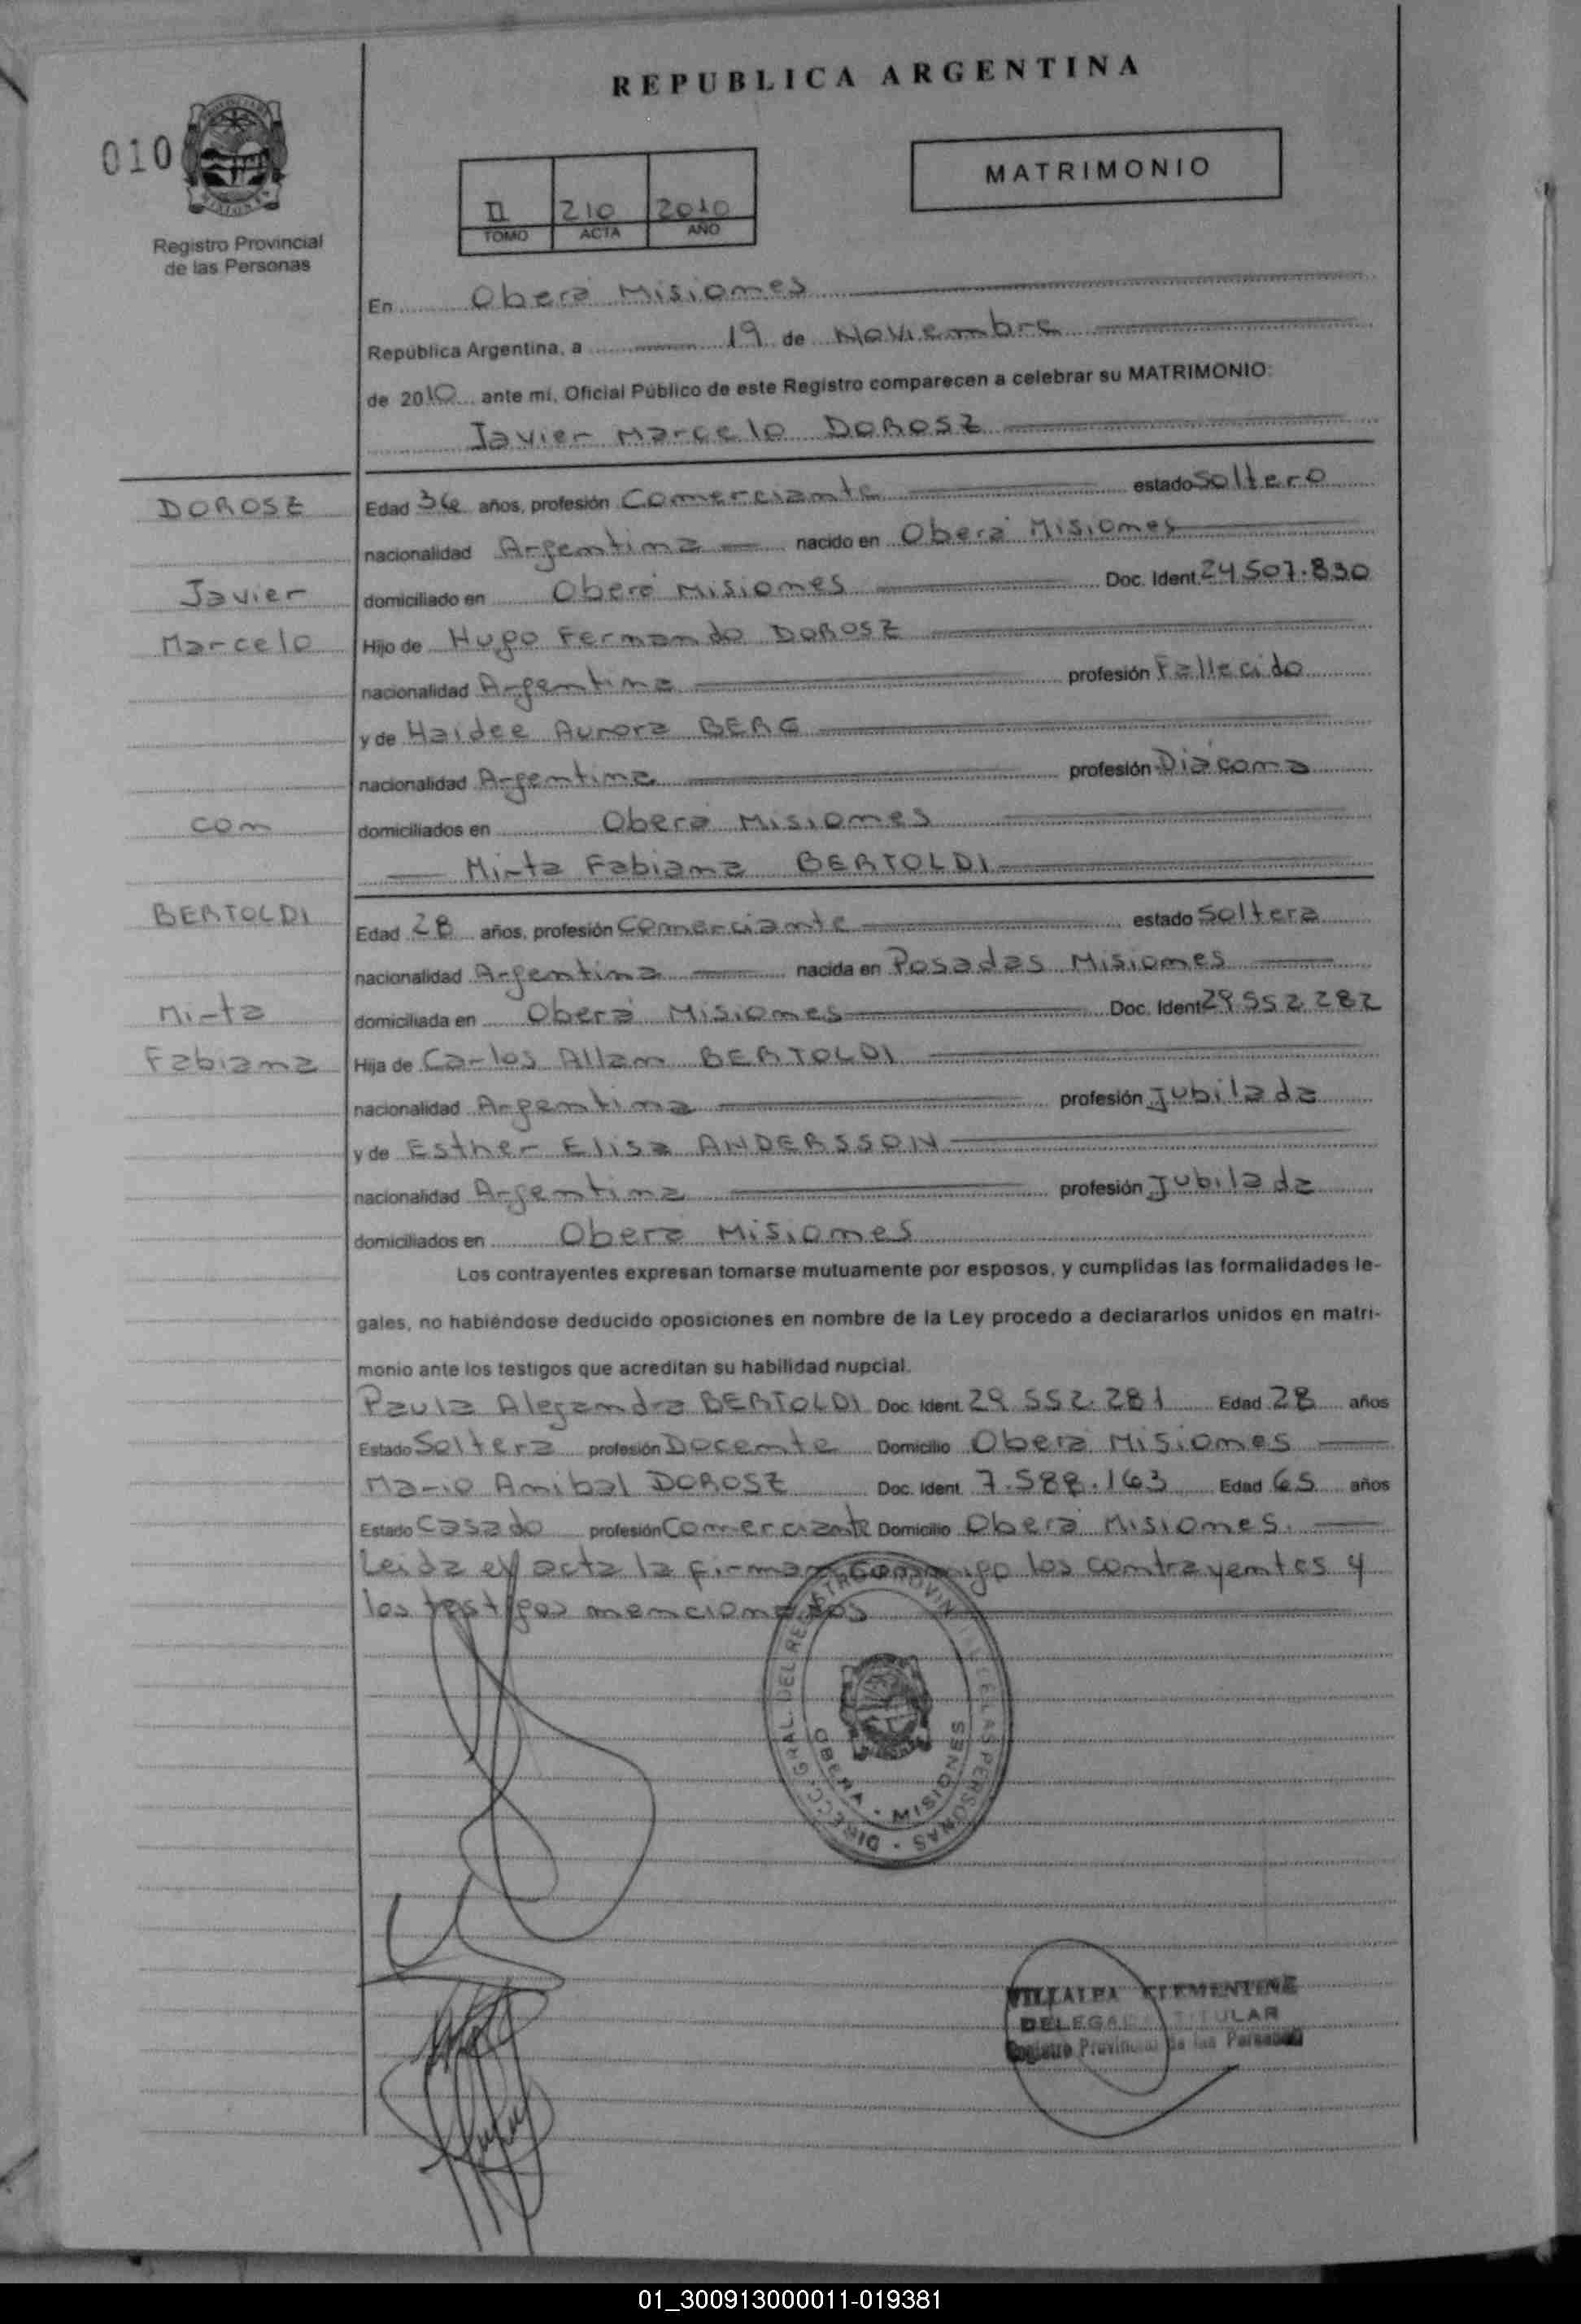 REPUBLICA ARGENTINA
010
Registro Provincial
de las Personas
MATRIMONIO
II 210 2010
TOMO ACTA AÑO
En Oberá Misiones
República Argentina, a 19 de Noviembre
de 2010 ante mí, Oficial Público de este Registro comparecen a celebrar su MATRIMONIO:
Javier Marcelo DOROSZ
DOROSZ
Javier
Marcelo
con
BERTOLDI
Mirta
Fabiana
Edad 36 años, profesión Comerciante estado Soltero
nacionalidad Argentina nacido en Oberá Misiones
domiciliado en Oberá Misiones Doc. Ident. 24.507.830
Hijo de Hugo Fernando DOROSZ
nacionalidad Argentina profesión Fallecido
y de Haidee Aurora BERG
nacionalidad Argentina profesión Diácona
domiciliados en Oberá Misiones
Mirta Fabiana BERTOLDI
Edad 28 años, profesión Comerciante estado Soltera
nacionalidad Argentina nacida en Posadas Misiones
domiciliada en Oberá Misiones Doc. Ident. 29.552.282
Hija de Carlos Allan BERTOLDI
nacionalidad Argentina profesión Jubilada
y de Esther Elisa ANDERSSON
nacionalidad Argentina profesión Jubilada
domiciliados en Oberá Misiones
Los contrayentes expresan tomarse mutuamente por esposos, y cumplidas las formalidades le-
gales, no habiéndose deducido oposiciones en nombre de la Ley procedo a declararlos unidos en matri-
monio ante los testigos que acreditan su habilidad nupcial.
Paula Alejandra BERTOLDI Doc. Ident. 29.552.281 Edad 28 años
Estado Soltera profesión Docente Domicilio Oberá Misiones
Mario Anibal DOROSZ Doc. Ident. 7.588.163 Edad 65 años
Estado Casado profesión Comerciante Domicilio Oberá Misiones.
Leida el acta la firman conmigo los contrayentes y
los testigos mencionados
DIRECC. GRAL. DEL REGISTRO PROVINCIAL DE LAS PERSONAS
OBERA - MISIONES
VILLALBA CLEMENTINE
DELEGADA TITULAR
Registro Provincial de las Personas
01_300913000011-019381